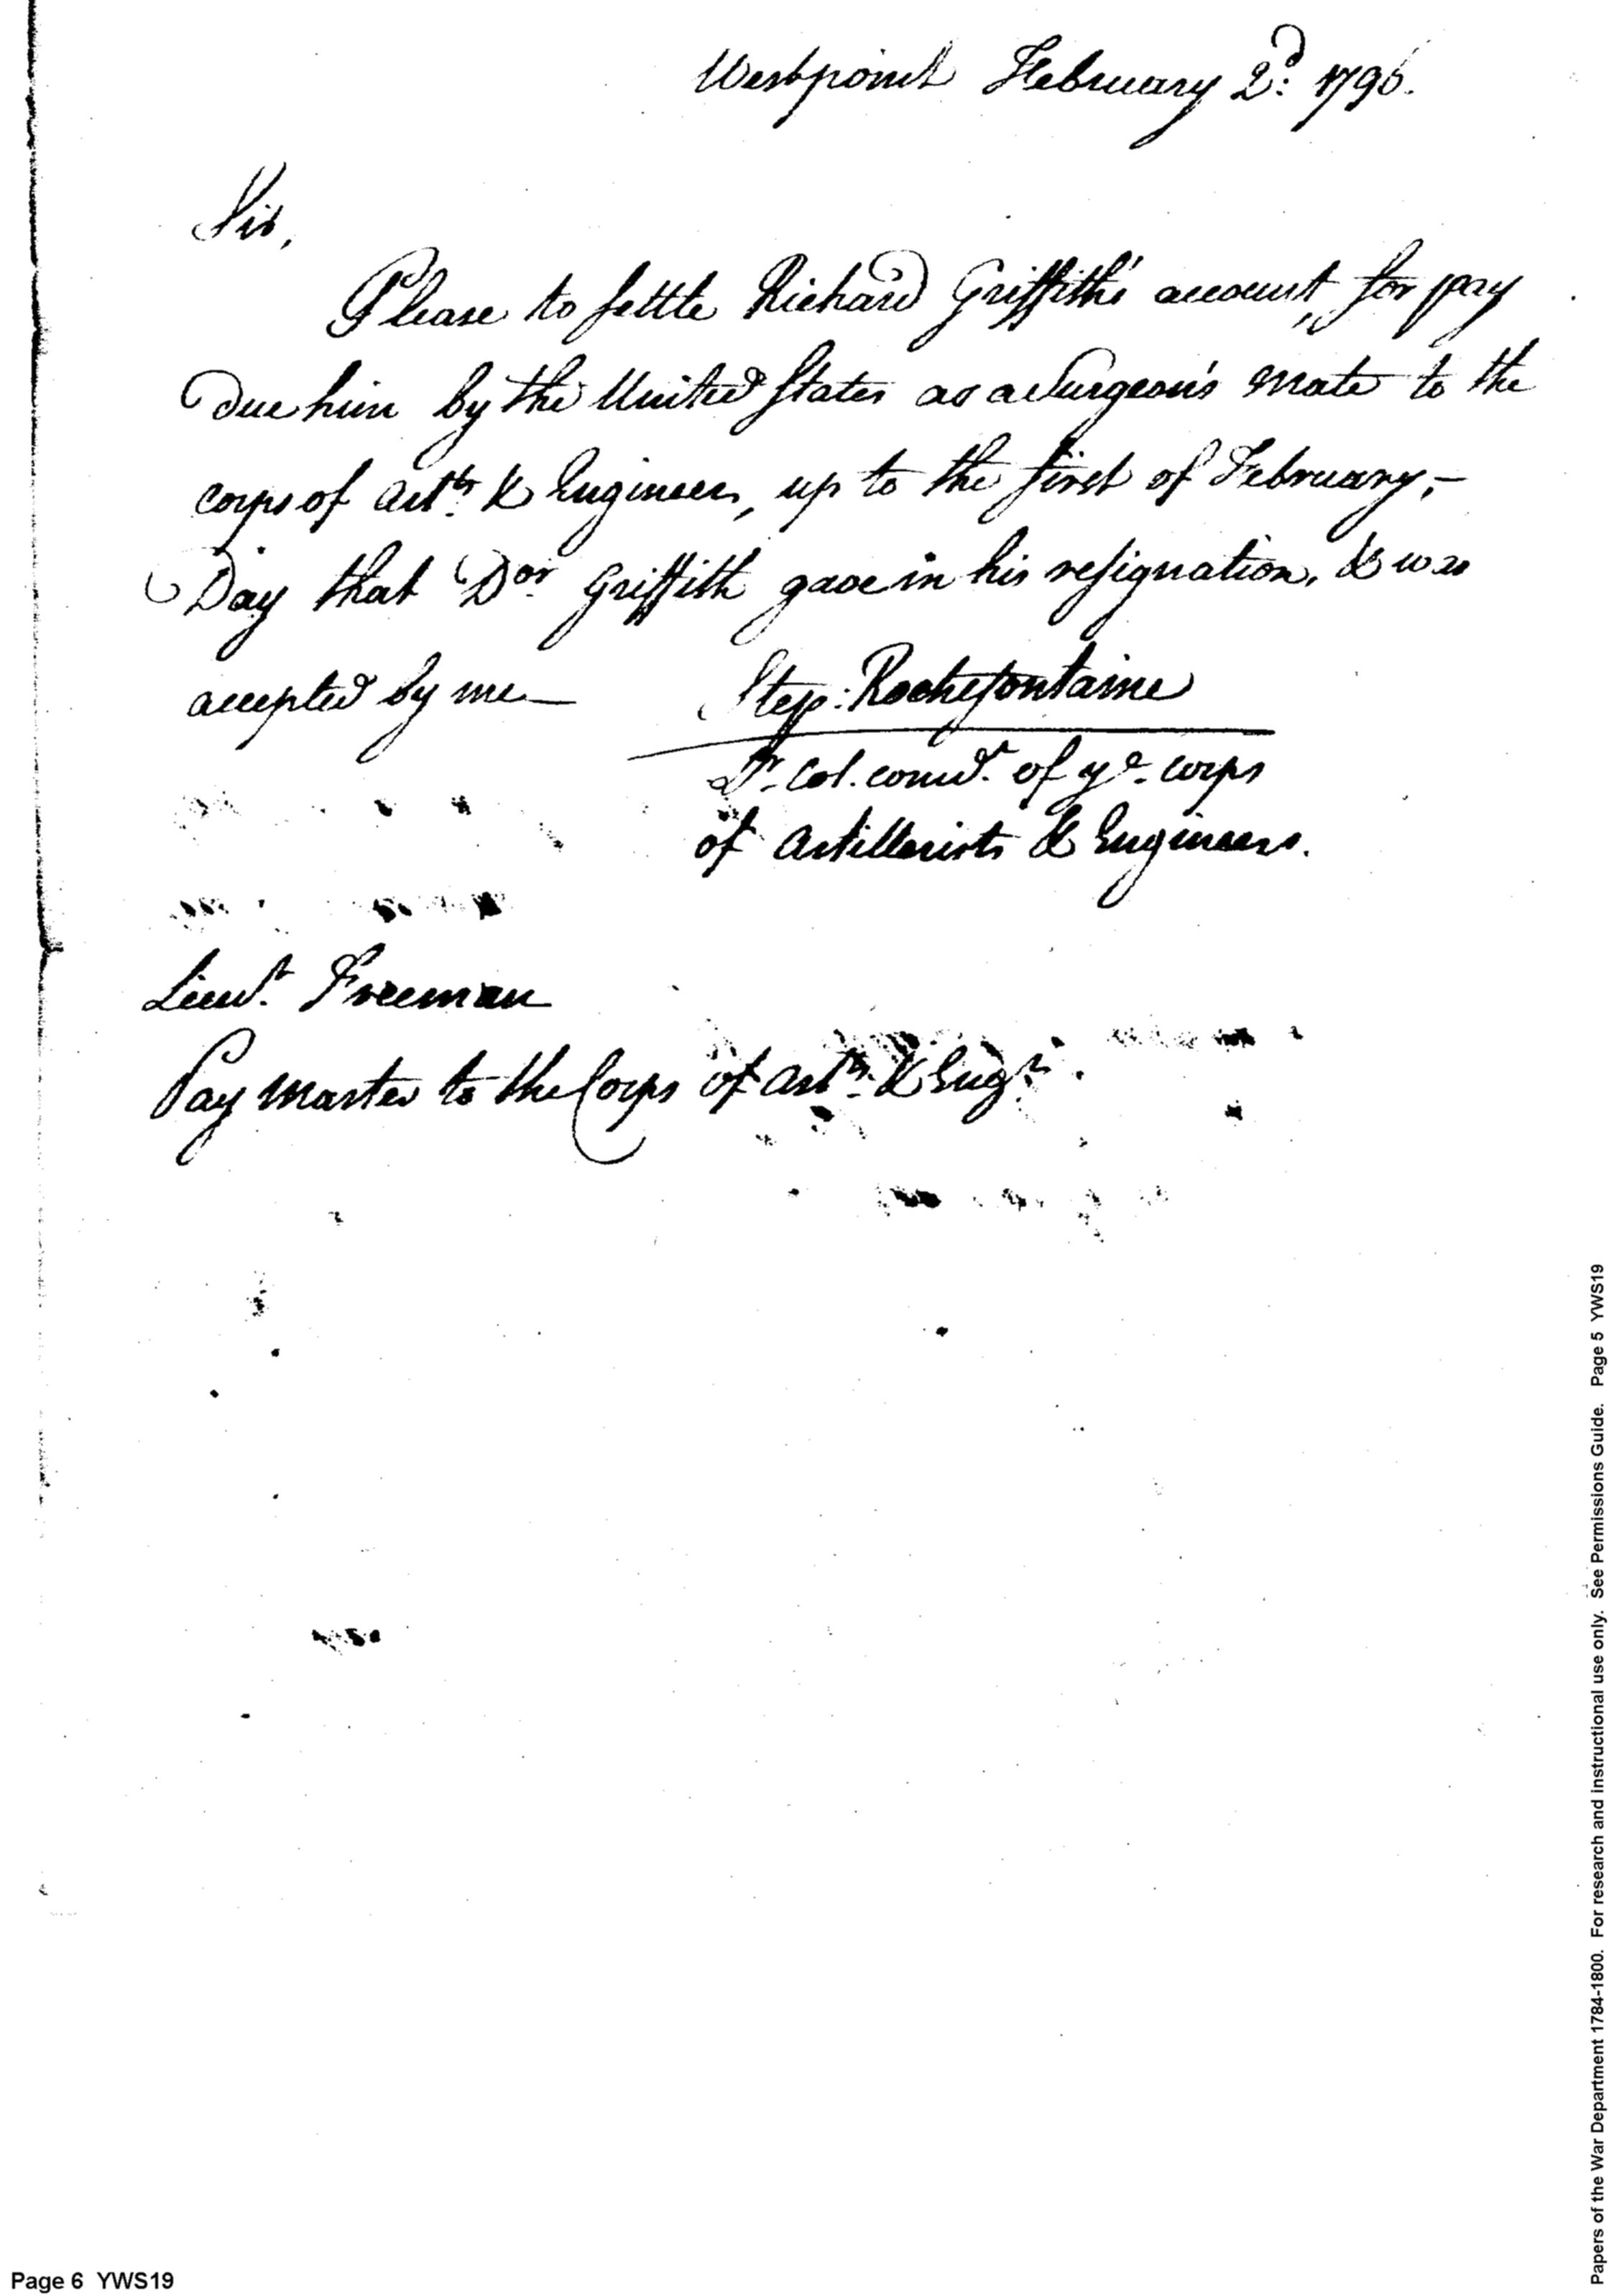 Westpoint February 2d. 1796.
Sir,
Please to settle Richard Griffith's account, for pay
due him by the United States as a Surgeon's mate to the
corps of arts. & Engineers, up to the first of February,-
Day that Dor Griffith gave in his resignation, & was
accepted by me—
Step: Rochefontaine
Lt. Col. comdt. of ye. corps
of Artillerists & Engineers.
Lieut. Freeman
Pay Master to the Corps of arts. & Engrs.
Page 6 YWS19
Papers of the War Department 1784-1800. For research and instructional use only. See Permissions Guide. Page 5 YWS19